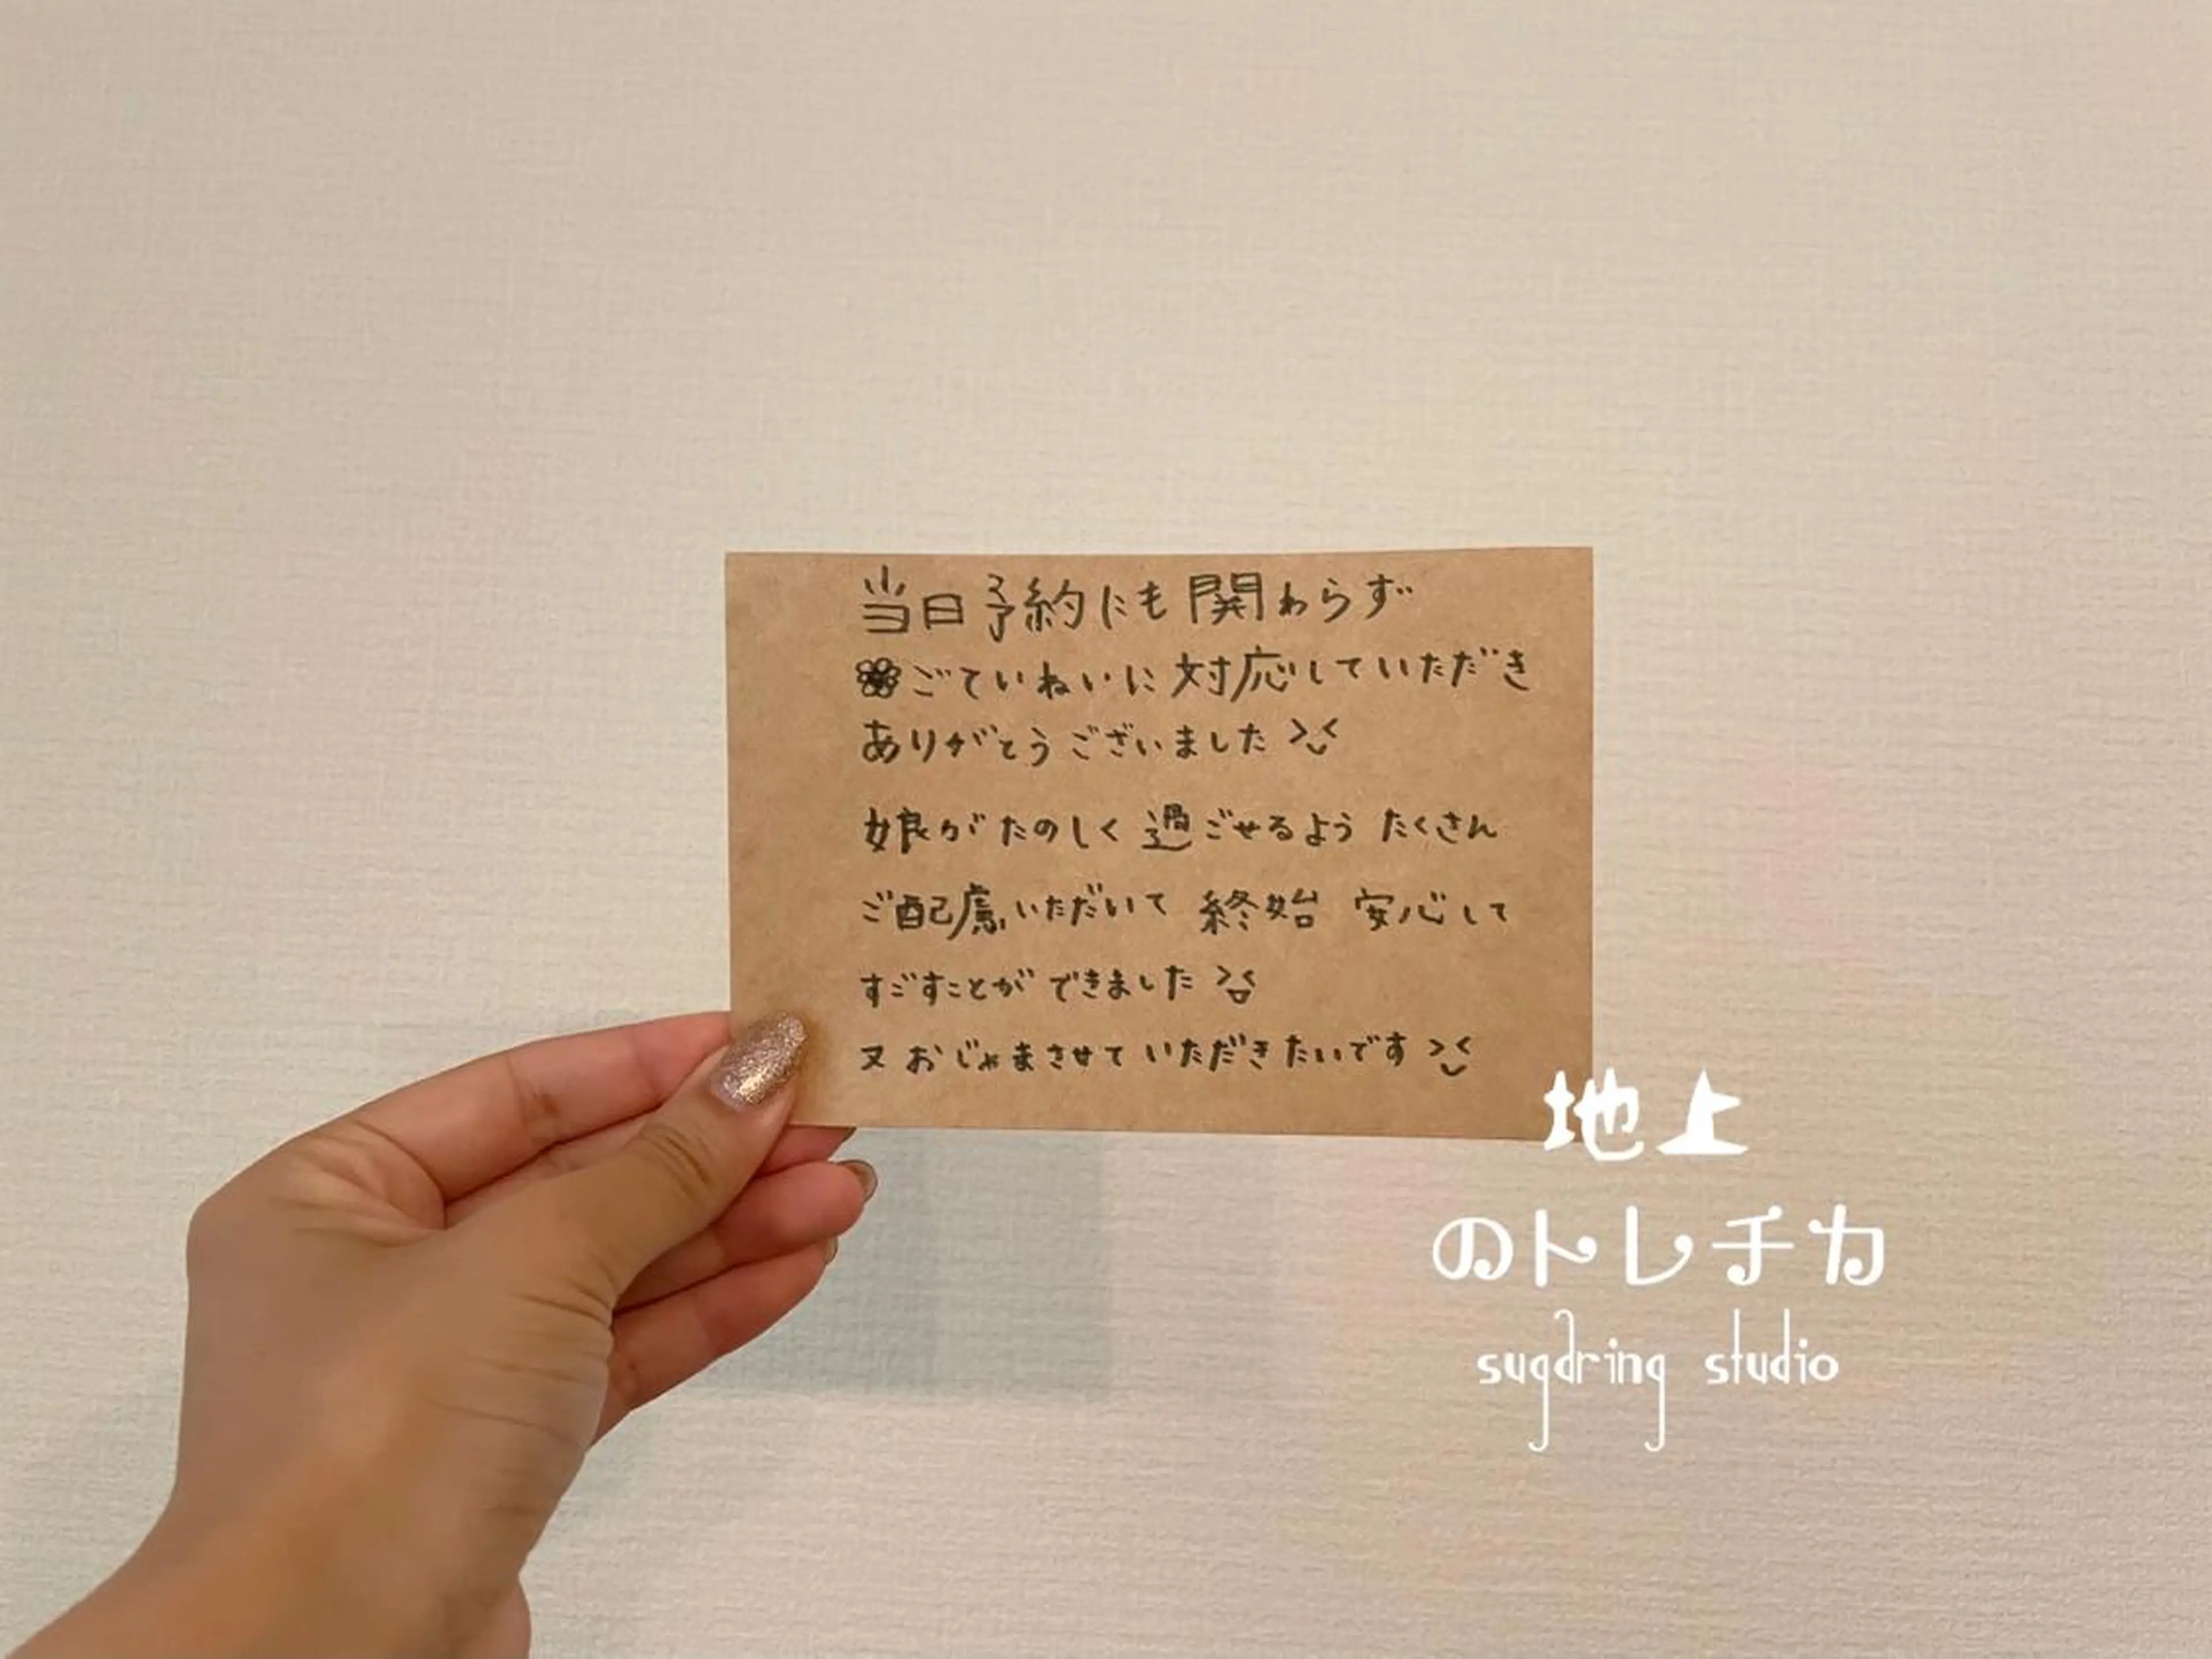 当日予約にも関わらず
ごていねいに対応していただき
ありがとうございました
娘がたのしく過ごせるよう たくさん
ご配慮いただいて 終始 安心して
すごすことが できました
又 おじゃまさせて いただきたいです
地上
のトレチカ
sugdring studio